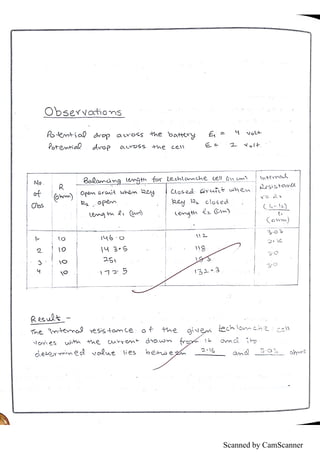 Observations
Potential drop across the battery E₁ = 4 volt
Potential drop across the cell E = 2 volt
No of Obs
R (ohm)
Balancing length for Leclanche cell (in cm)
Open circuit when key K₂ open length l₁ (cm)
Closed circuit when key K₂ closed length l₂ (cm)
Internal Resistance
(ohm)
1 10 146.0 112
2 10 143.5 118
3 10 251
4 10 172.5 132.3
Result -
The internal resistance of the given cell
varies with the current drawn from it and its
determined value lies between 2.16 and 5.05 ohms
Scanned by CamScanner